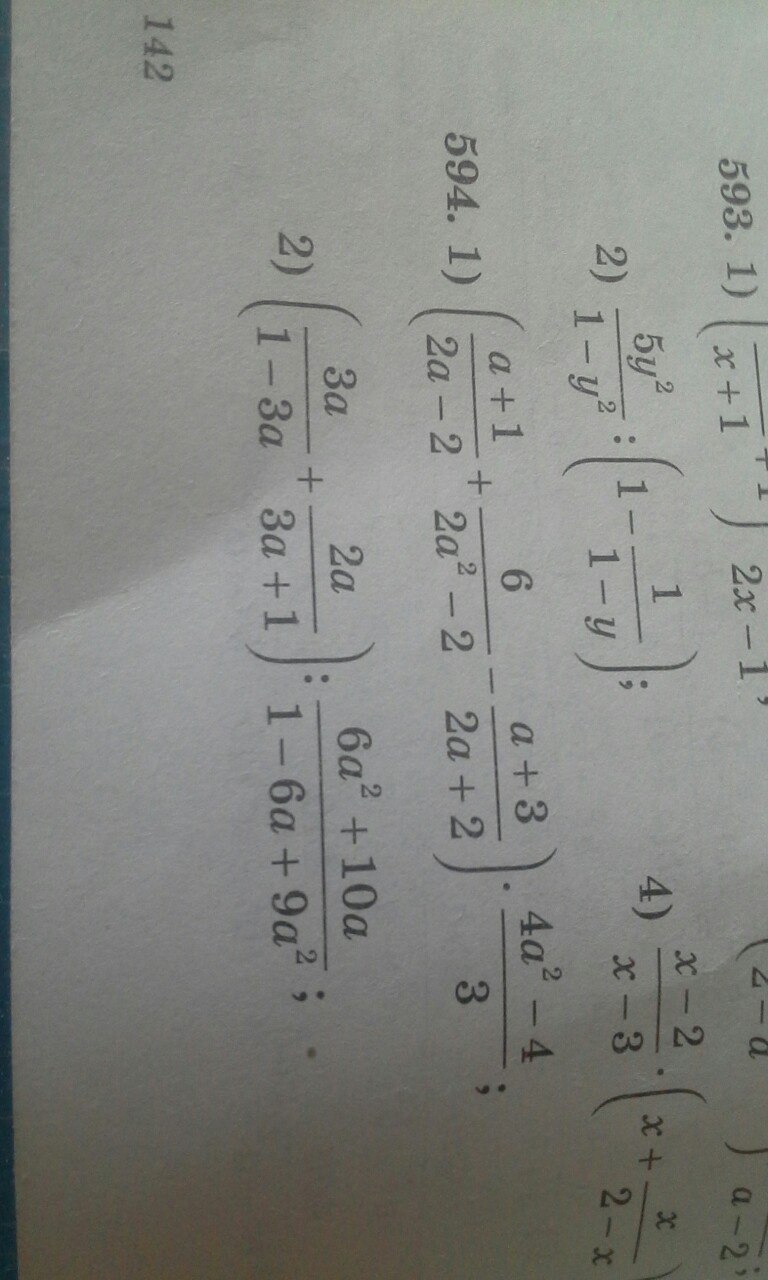 593. 1) ( / (x + 1) + 1) 2x − 1;
(2 − a ) a − 2;
2) 5y²/(1 − y²) : (1 − 1/(1 − y));
4) (x − 2)/(x − 3) · (x + x/(2 − x))
594. 1) ((a + 1)/(2a − 2) + 6/(2a² − 2) − (a + 3)/(2a + 2)) · (4a² − 4)/3;
2) (3a/(1 − 3a) + 2a/(3a + 1)) : (6a² + 10a)/(1 − 6a + 9a²);
142